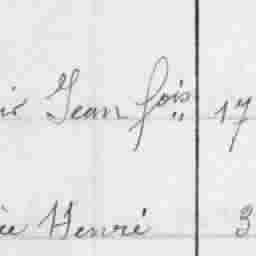 Jean fois 17
Henri 3